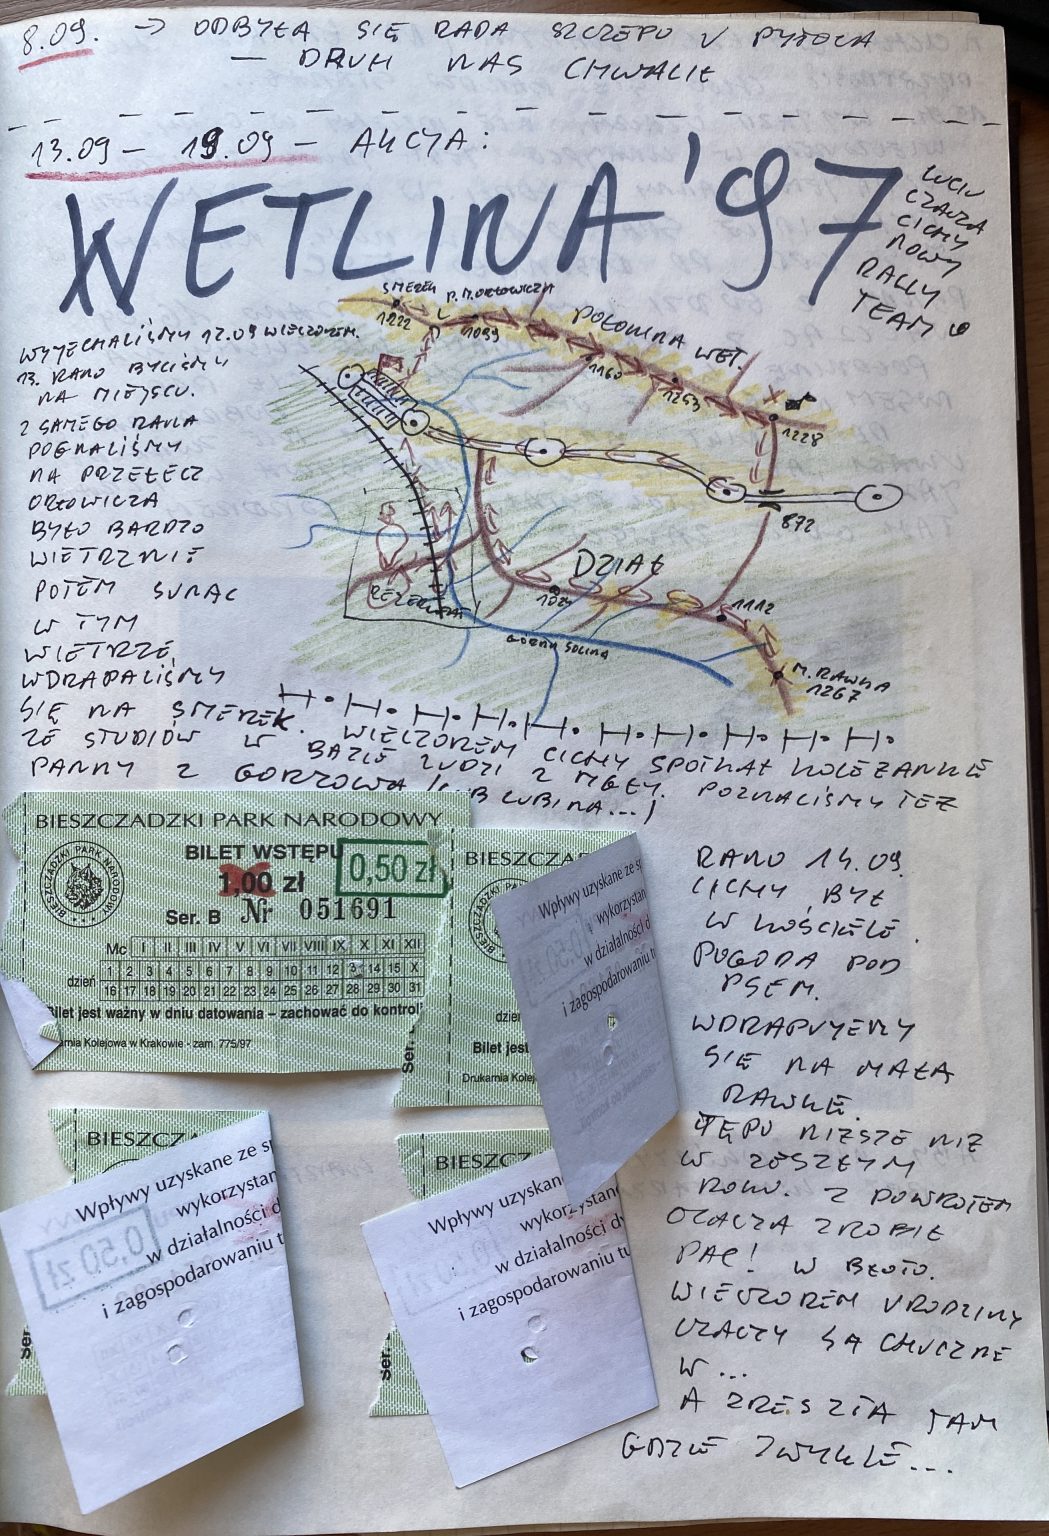 8.09. → ODBYŁA SIĘ RADA SZCZEPU V PYTOCA
— DRUH NAS CHWALIŁ
13.09 – 19.09 – AKCJA:
WETLINA '97
CZACZA
CICHY
NOWY
RALLY
TEAM
SMEREK
1222
P. M. ORŁOWICZA
1099
POŁONINA WET.
1160
1253
1228
872
DZIAŁ
1112
M. RAWKA
1267
REZERWAT
GÓRNA SOLINA
WYJECHALIŚMY 12.09 WIECZOREM.
13. RANO BYLIŚMY
NA MIEJSCU.
Z SAMEGO RANA
POGNALIŚMY
NA PRZEŁĘCZ
ORŁOWICZA
BYŁO BARDZO
WIETRZNIE
POTEM
W TYM
WIETRZE,
WDRAPALIŚMY
SIĘ NA SMEREK. WIECZOREM CICHY SPOTKAŁ KOLEŻANKĘ
ZE STUDIÓW W BAZIE LUDZI Z MGŁY. POZNALIŚMY TEŻ
PANNY Z GORZOWA (LUB LUBINA...)
BIESZCZADZKI PARK NARODOWY
BIESZCZADZKI PARK NARODOWY
BILET WSTĘPU
1,00 zł
0,50 zł
Ser. B Nr 051691
Mc I II III IV V VI VII VIII IX X XI XII
dzień 1 2 3 4 5 6 7 8 9 10 11 12 3 14 15 X
16 17 18 19 20 21 22 23 24 25 26 27 28 29 30 31
Bilet jest ważny w dniu datowania – zachować do kontrol
rnia Kolejowa w Krakowie - zam. 775/97
Ser.
BIESZCZA
dzie
Bilet jest
Drukarnia Kolej
Wpływy uzyskane ze sp
wykorzystan
w działalności d
i zagospodarowaniu tu
RANO 14.09.
CICHY BYŁ
W KOŚCIELE.
POGODA POD
PSEM.
WDRAPUJEMY
SIĘ NA MAŁĄ
RAWKĘ.
TĘPO NIŻSZE NIŻ
W ZESZŁYM
ROKU. Z POWROTEM
CZACZA ZROBIŁ
PAC! W BŁOTO.
WIECZOREM URODZINY
CZACZY SĄ HUCZNE
W...
A ZRESZTĄ TAM
GDZIE ZWYKLE...
BIESZCZA
Wpływy uzyskane ze sp
wykorzystan
w działalności d
i zagospodarowaniu t
0,50 zł
Ser
BIESZCZ
Wpływy uzyskan
wykorzystan
w działalności dy
i zagospodarowaniu tu
Ser.